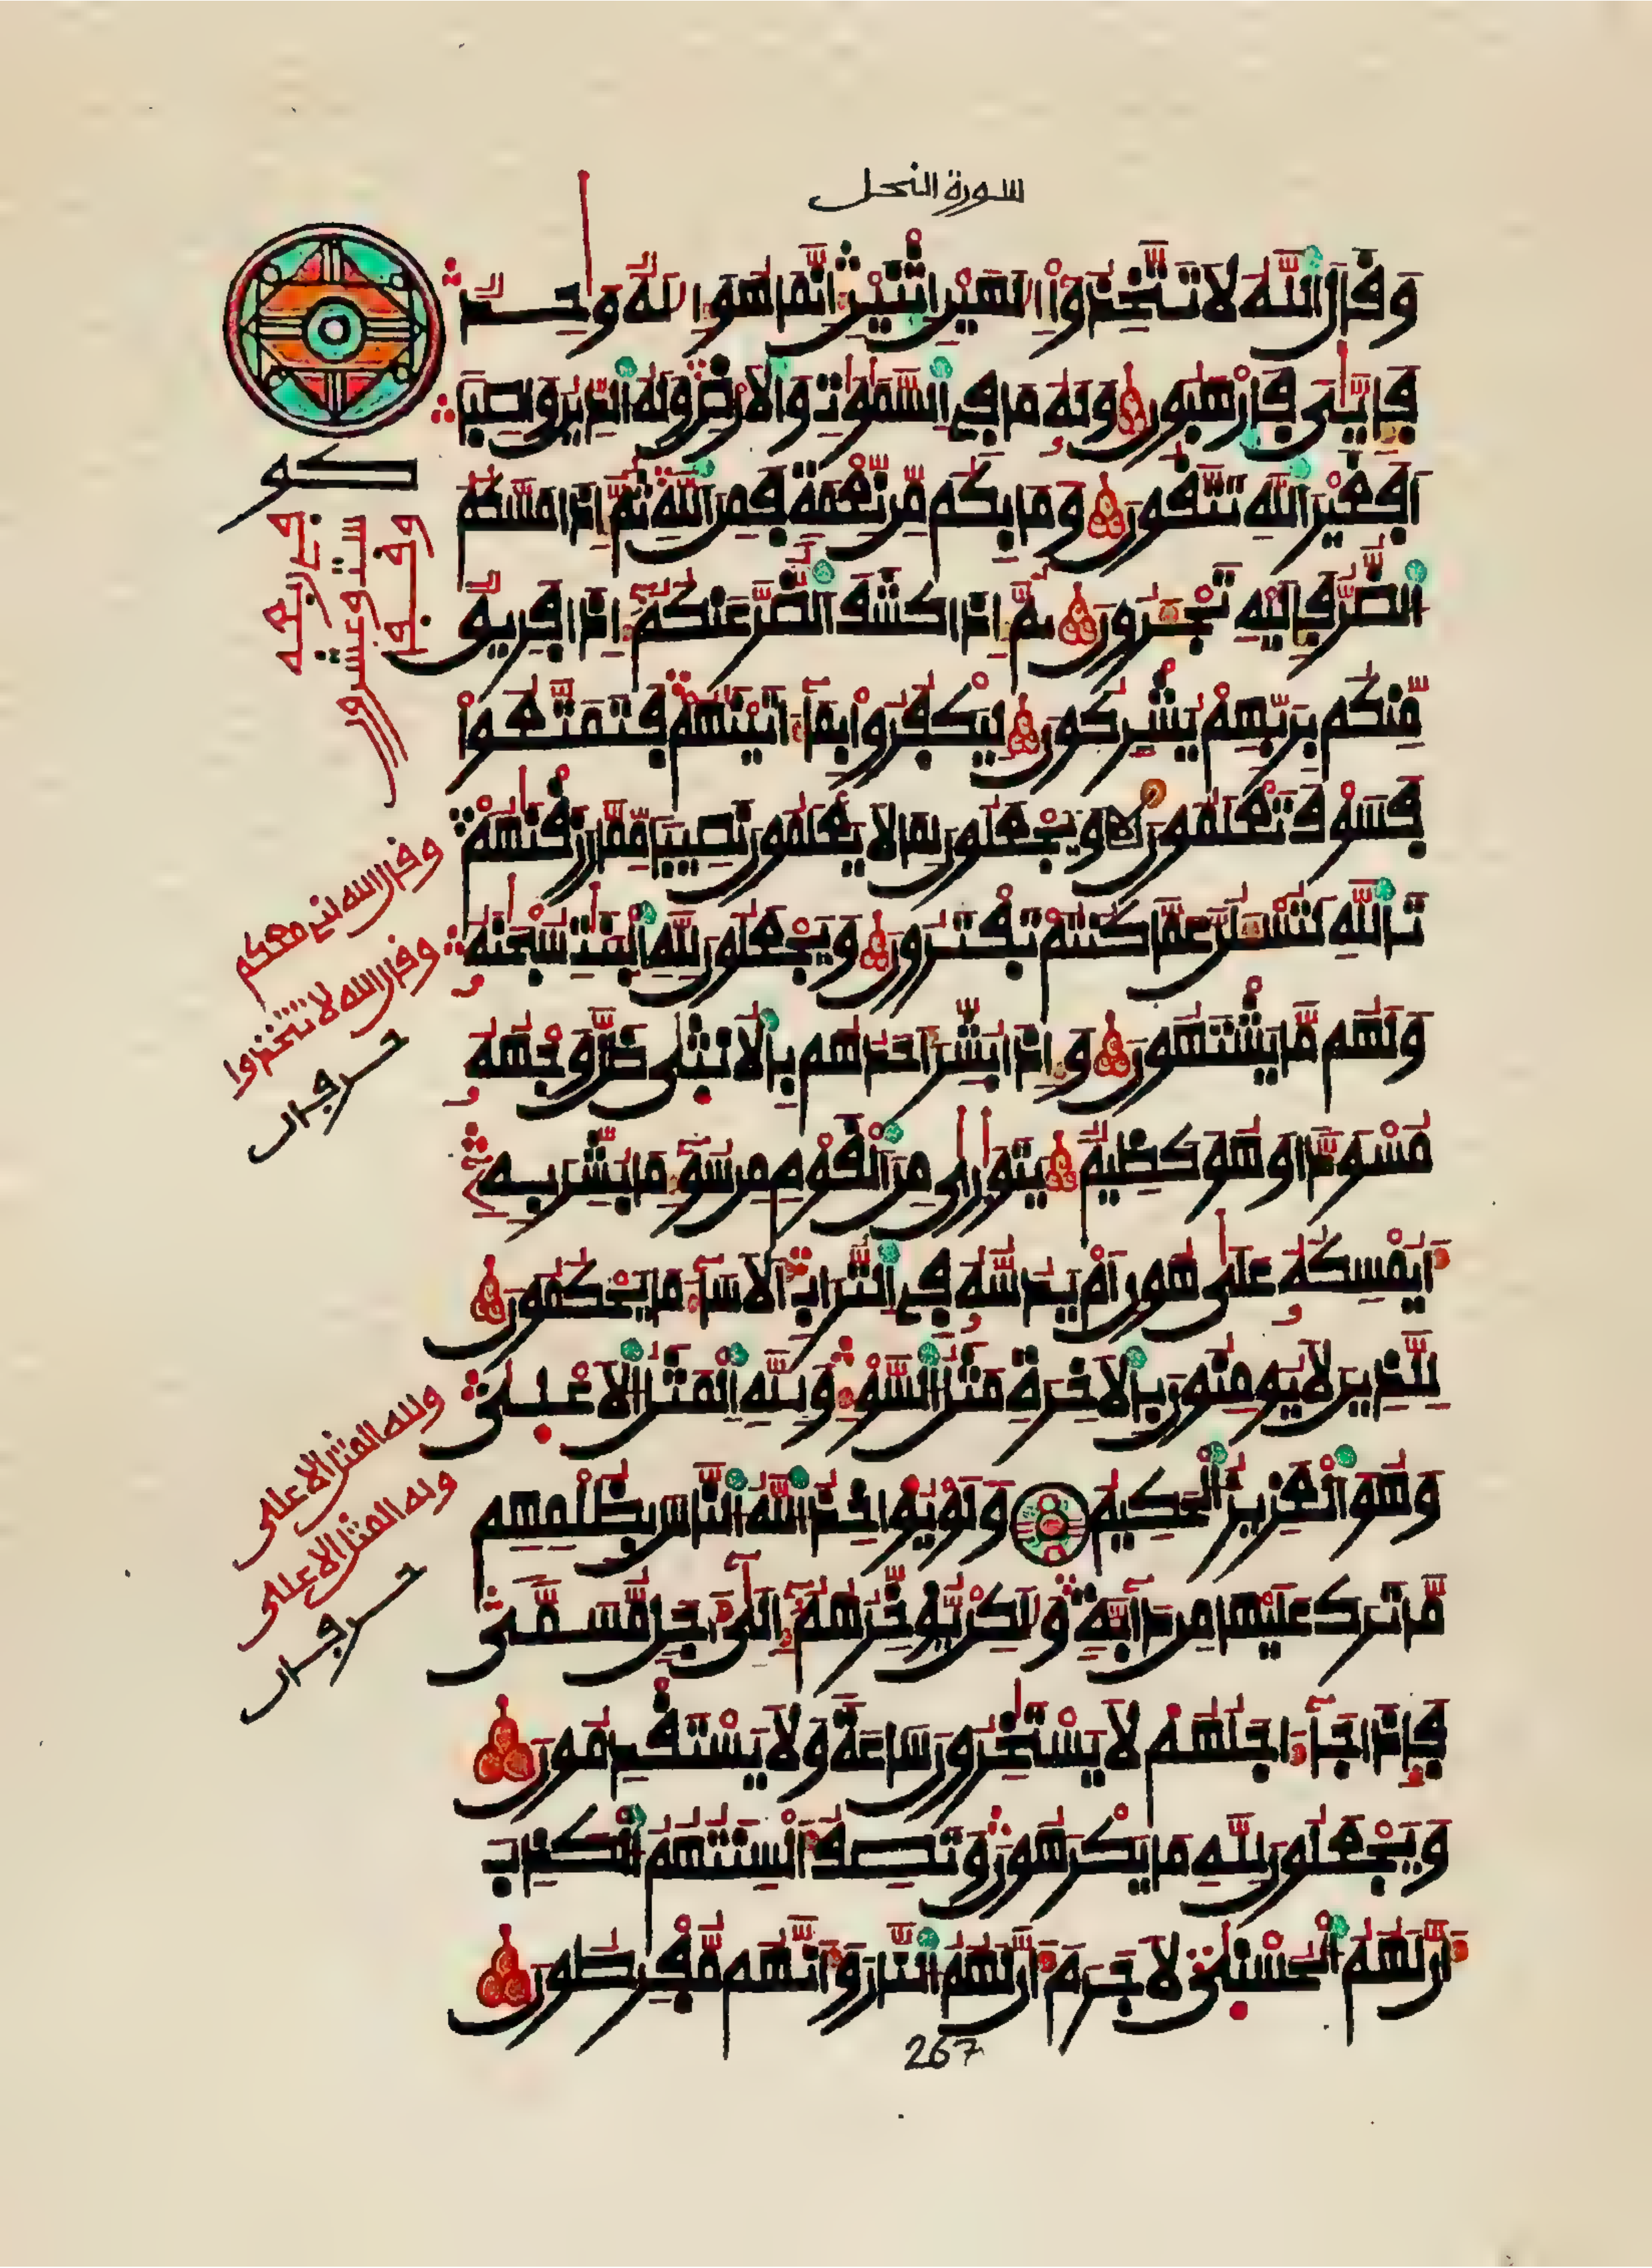 سورة النحل
وَقَالَ اَللَّهُ لَا تَتَّخِذُوٓاْ إِلَٰهَيْنِ اِثْنَيْنِ إِنَّمَا هُوَ إِلَٰهٌ وَٰحِدٌ
فَإِيَّٰيَ فَارْهَبُونِ وَلَهُۥ مَا فِي اِلسَّمَٰوَٰتِ وَالَارْضِ وَلَهُ اُلدِّينُ وَاصِباً
اَفَغَيْرَ اَللَّهِ تَتَّقُونَ وَمَا بِكُم مِّن نِّعْمَةٍ فَمِنَ اَللَّهِ ثُمَّ إِذَا مَسَّكُمُ
اُلضُّرُّ فَإِلَيْهِ تَجْـَٔرُونَ ثُمَّ إِذَا كَشَفَ اَلضُّرَّ عَنكُمُۥٓ إِذَا فَرِيقٌ
مِّنكُم بِرَبِّهِمْ يُشْرِكُونَ لِيَكْفُرُواْ بِمَآ ءَاتَيْنَٰهُمْ فَتَمَتَّعُواْ
فَسَوْفَ تَعْلَمُونَ وَيَجْعَلُونَ لِمَا لَا يَعْلَمُونَ نَصِيباً مِّمَّا رَزَقْنَٰهُمْ
تَاللَّهِ لَتُسْـَٔلُنَّ عَمَّا كُنتُمْ تَفْتَرُونَ وَيَجْعَلُونَ لِلهِ اِلْبَنَٰتِ سُبْحَٰنَهُۥ
وَلَهُم مَّا يَشْتَهُونَ وَإِذَا بُشِّرَ أَحَدُهُم بِالُانثَىٰ ظَلَّ وَجْهُهُۥ
مُسْوَدّاً وَهُوَ كَظِيمٌ يَتَوَٰرَىٰ مِنَ اَلْقَوْمِ مِن سُوٓءِ مَا بُشِّرَ بِهِۦٓ
أَيُمْسِكُهُۥ عَلَىٰ هُونٍ أَمْ يَدُسُّهُۥ فِي اِلتُّرَابِ أَلَا سَآءَ مَا يَحْكُمُونَ
لِلذِينَ لَا يُومِنُونَ بِالَاخِرَةِ مَثَلُ اُلسَّوْءِ وَلِلهِ اِلْمَثَلُ اُلَاعْلَىٰ
وَهُوَ اَلْعَزِيزُ اُلْحَكِيمُ وَلَوْ يُوَاخِذُ اُللَّهُ اُلنَّاسَ بِظُلْمِهِم
مَّا تَرَكَ عَلَيْهَا مِن دَآبَّةٍ وَلَٰكِنْ يُّوَخِّرُهُمُۥٓ إِلَىٰٓ أَجَلٍ مُّسَمّىً
فَإِذَا جَآءَ اَجَلُهُمْ لَا يَسْتَٰخِرُونَ سَاعَةً وَلَا يَسْتَقْدِمُونَ
وَيَجْعَلُونَ لِلهِ مَا يَكْرَهُونَ وَتَصِفُ أَلْسِنَتُهُمُ اُلْكَذِبَ
أَنَّ لَهُمُ اُلْحُسْنَىٰ لَا جَرَمَ أَنَّ لَهُمُ اُلنَّارَ وَأَنَّهُم مُّفْرِطُونَ
267
كو
وقفوا
ستة وعشرون
في ربعه
وقال الله إني معكم
وقال الله لا تتخذوا
حرفان
ولله المثل الاعلى
وله المثل الاعلى
حرفان